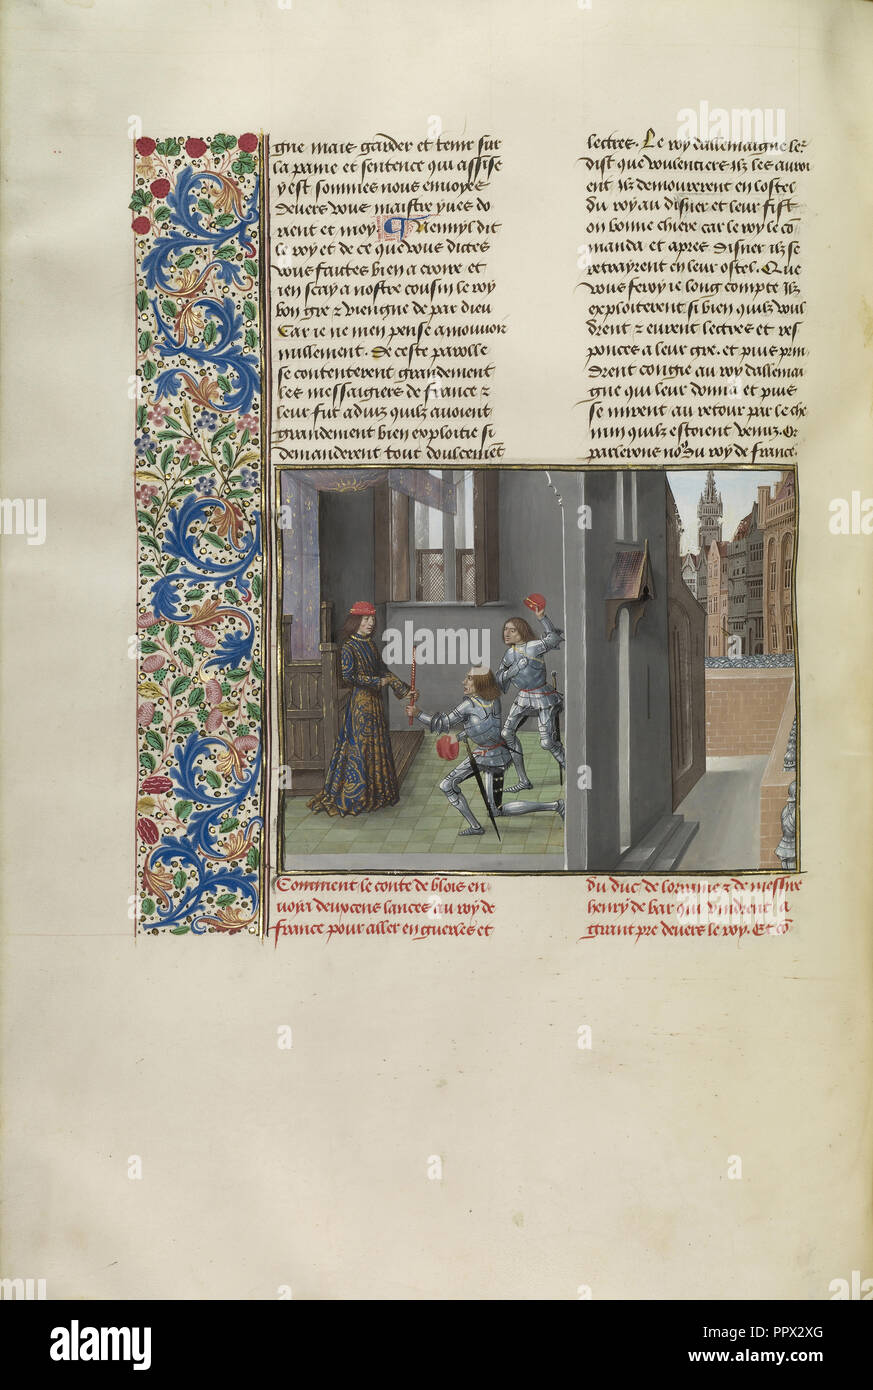 gne mais garder et tenir sur
la paine et sentence qui assise
y est sommes nous enuoyes
deuers vous maistre yues do
rient et moy. Nennyl dit
le roy et de ce que vous dittes
vous fautes bien a croire et
ien scay a nostre cousin le roy
bon gre z viengne de par dieu
Car ie ne men pense a mouuoir
nullement. De ceste parolle
se contenterent grandement
les messaigiers de france z
leur fut aduiz quilz auoient
grandement bien exploitie si
demanderent tout doulcement
lettres. Le roy dallemaigne ler
dist que voulentiers ilz les auroi
ent ilz demourerent en lostel
du roy au disner et leur fist
on bonne chiere car le roy le co
manda et apres disner ilz se
retrayrent en leur ostel. Que
vous feroy ie long compte ilz
exploiterent si bien quilz voul
drent z eurent lectres et res
ponces a leur gre. et puis prin
drent congie au roy dallemai
gne qui leur donna et puis
se mirent au retour par le che
min quilz estoient venuz. Or
parlerons nous du roy de france.
Comment le conte de blois en
uoia deux cens lances au roy de
france pour aller en guerles et
du duc de lorraine z de messire
henry de bar qui vindrent a
grant pre deuers le roy. Et co
alamy
Image ID: PPX2XG
www.alamy.com